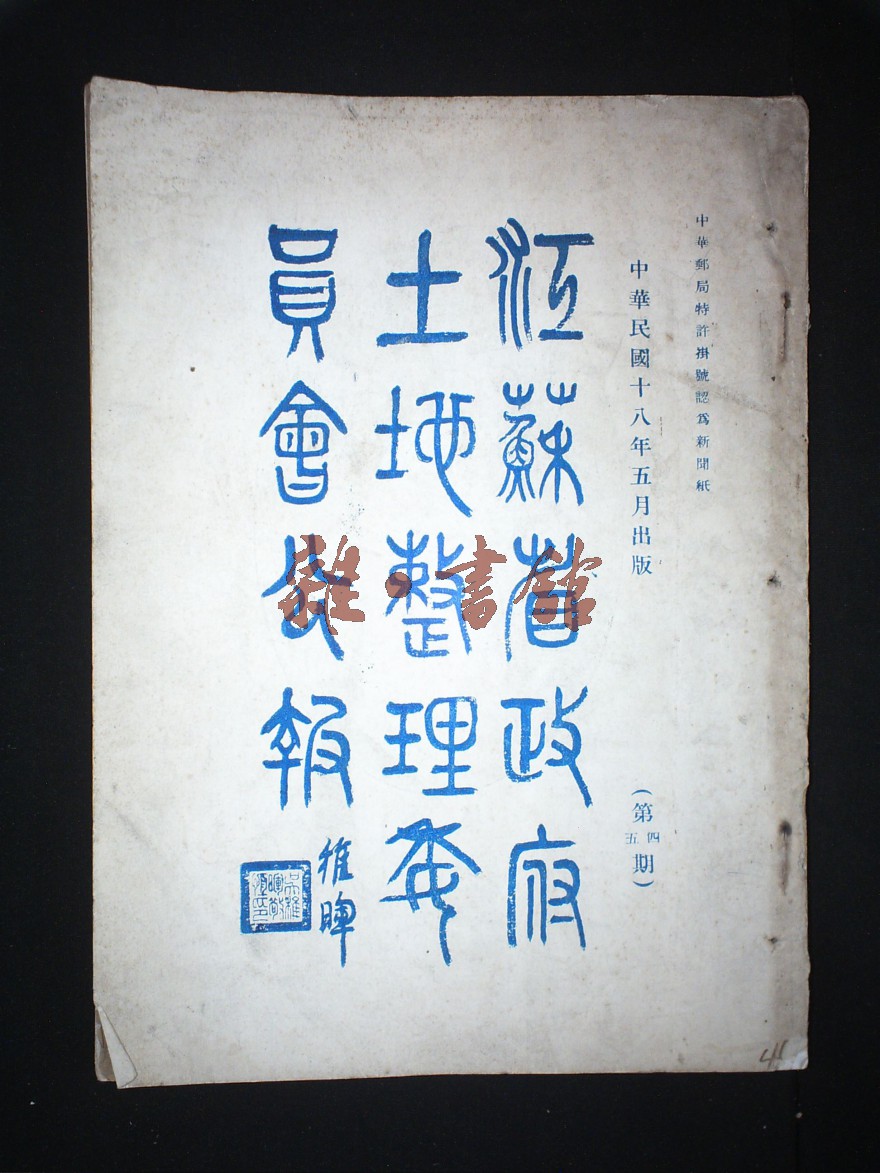 中華郵局特許掛號認爲新聞紙
中華民國十八年五月出版
（第四五期）
江蘇省政府
土地整理委
員會公報
稚暉
雜·書館
41